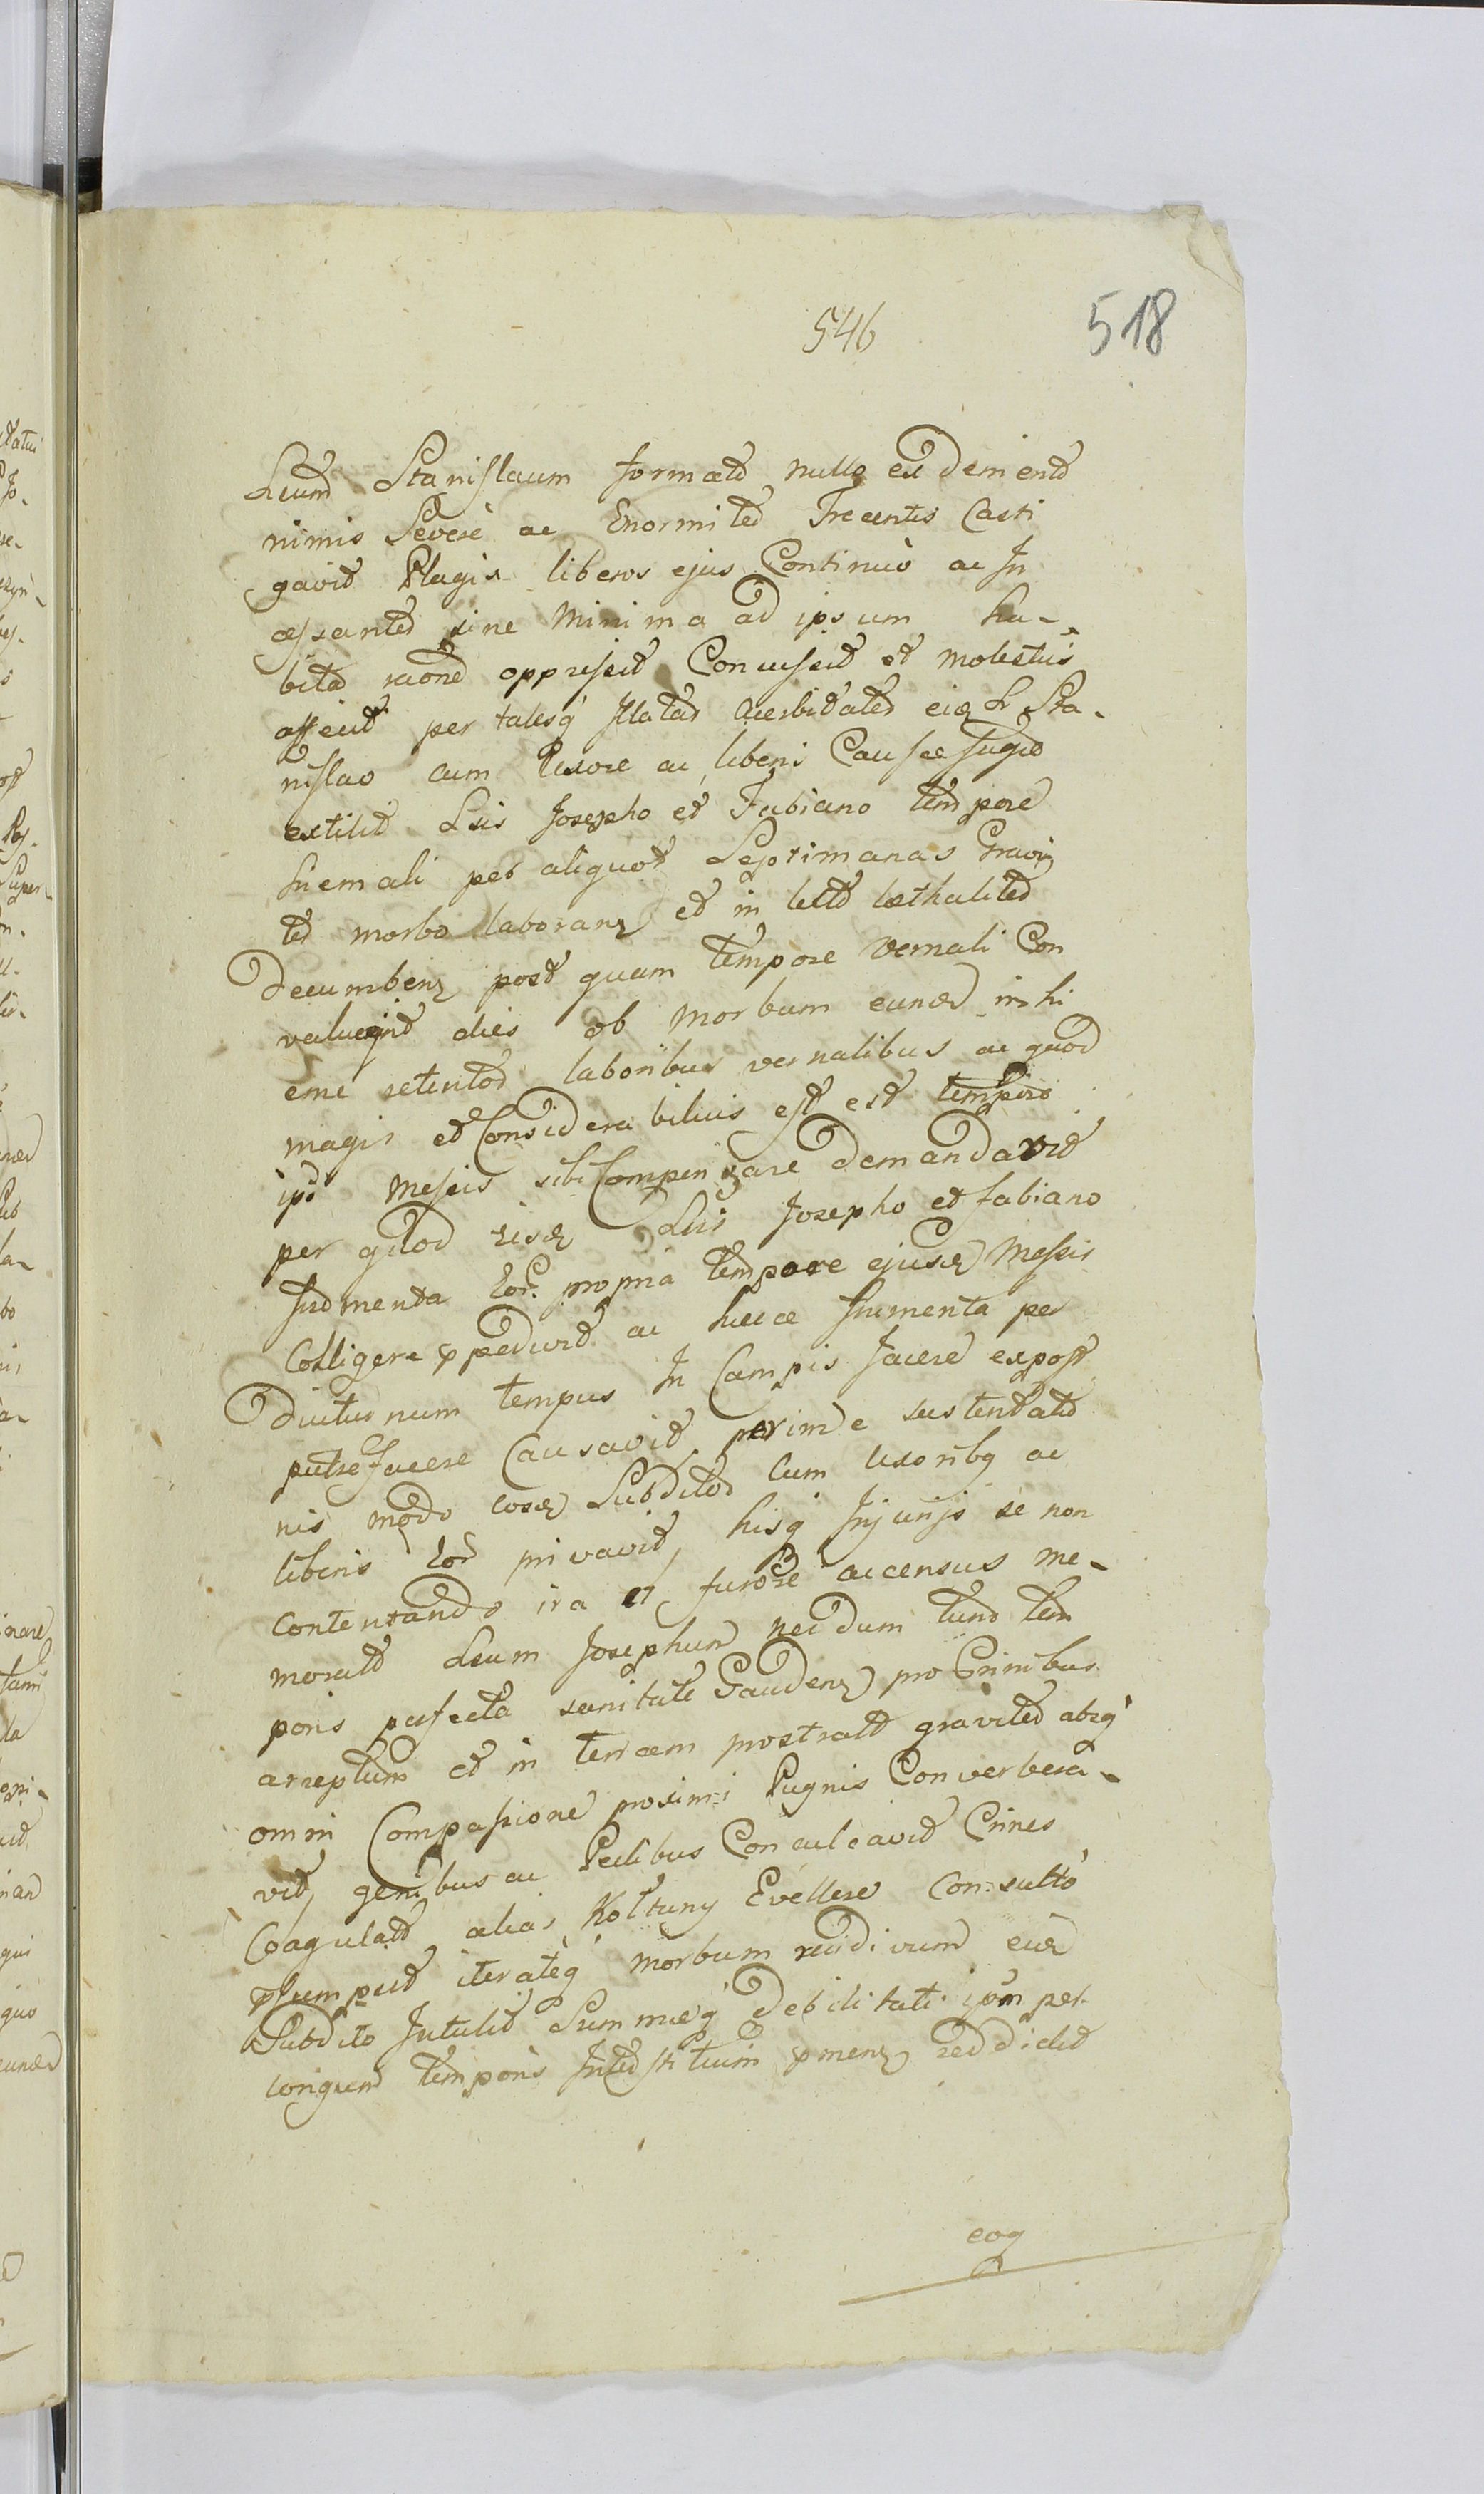 546
518
Lsum Stanislaum formatd nullo ex demeritd
nimis Severè ac Enormited Trecentis Casti
gavid Plagis liberos ejus Continuò ac In
cessanted sine Minima ad ipsum ha-
bitd raoned oppressid Concussid et molestiis
affecid per talesq Illatas Acerbitates eidem L Sta-
nislao cum Uxore ac liberis Causae fugae
extitid Lsis Josepho ed Fabiano tempore
hiemali per aliquot Septimanas Gravi
ted morbo laboran ed in lectd lethalited
Decumben post quam tempore vernali Con
valuerint dies ob Morbum eund in hi
eme retentos laboribus vernalibus ac quod
magis ed Considerabilius est est tempore
ipso Messis sibi Compensare demandavid
per quod iisd Lsis Josepho ed Fabiano
frumenta eor. propria tempore ejusd Messis
Colligere pedivid ac haece frumenta per
Diuturnum tempus In Campis Jacere expost
putrefacere Causavid perinde sustentatio
nis modo eosd Subditos Cum Uxoribq ac
liberis eor privavid, hisq Injuriis se non
contentando ira et furore accensus me-
moratd Lsum Josephum necdum tund tem
poris perfecta sanitate Gauden pro Crinibus
arreptum ed in terram prostratd gravited absq
omni Compassione proximi Pugnis Converbera-
vid, genibus ac Pedibus Conculcavid Crines
Coagulatd alias Kołtuny Evellere Consultò
psumpsid iteratèq morbum recidivum eid
Subdito Intulid Summaeq Debilitati ipsm per
longum temporis Interstitium pmen reddidid
eoq